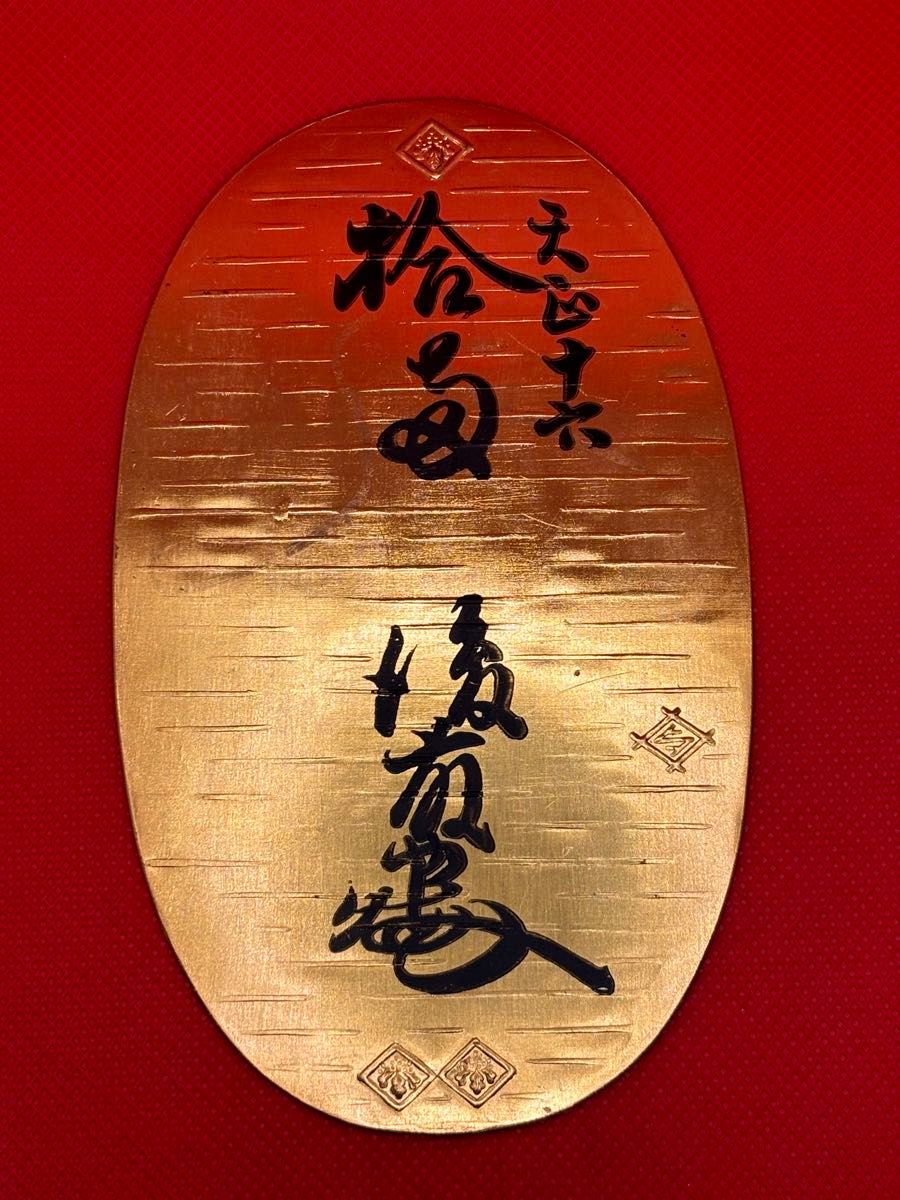 天正十六
拾両
後藤